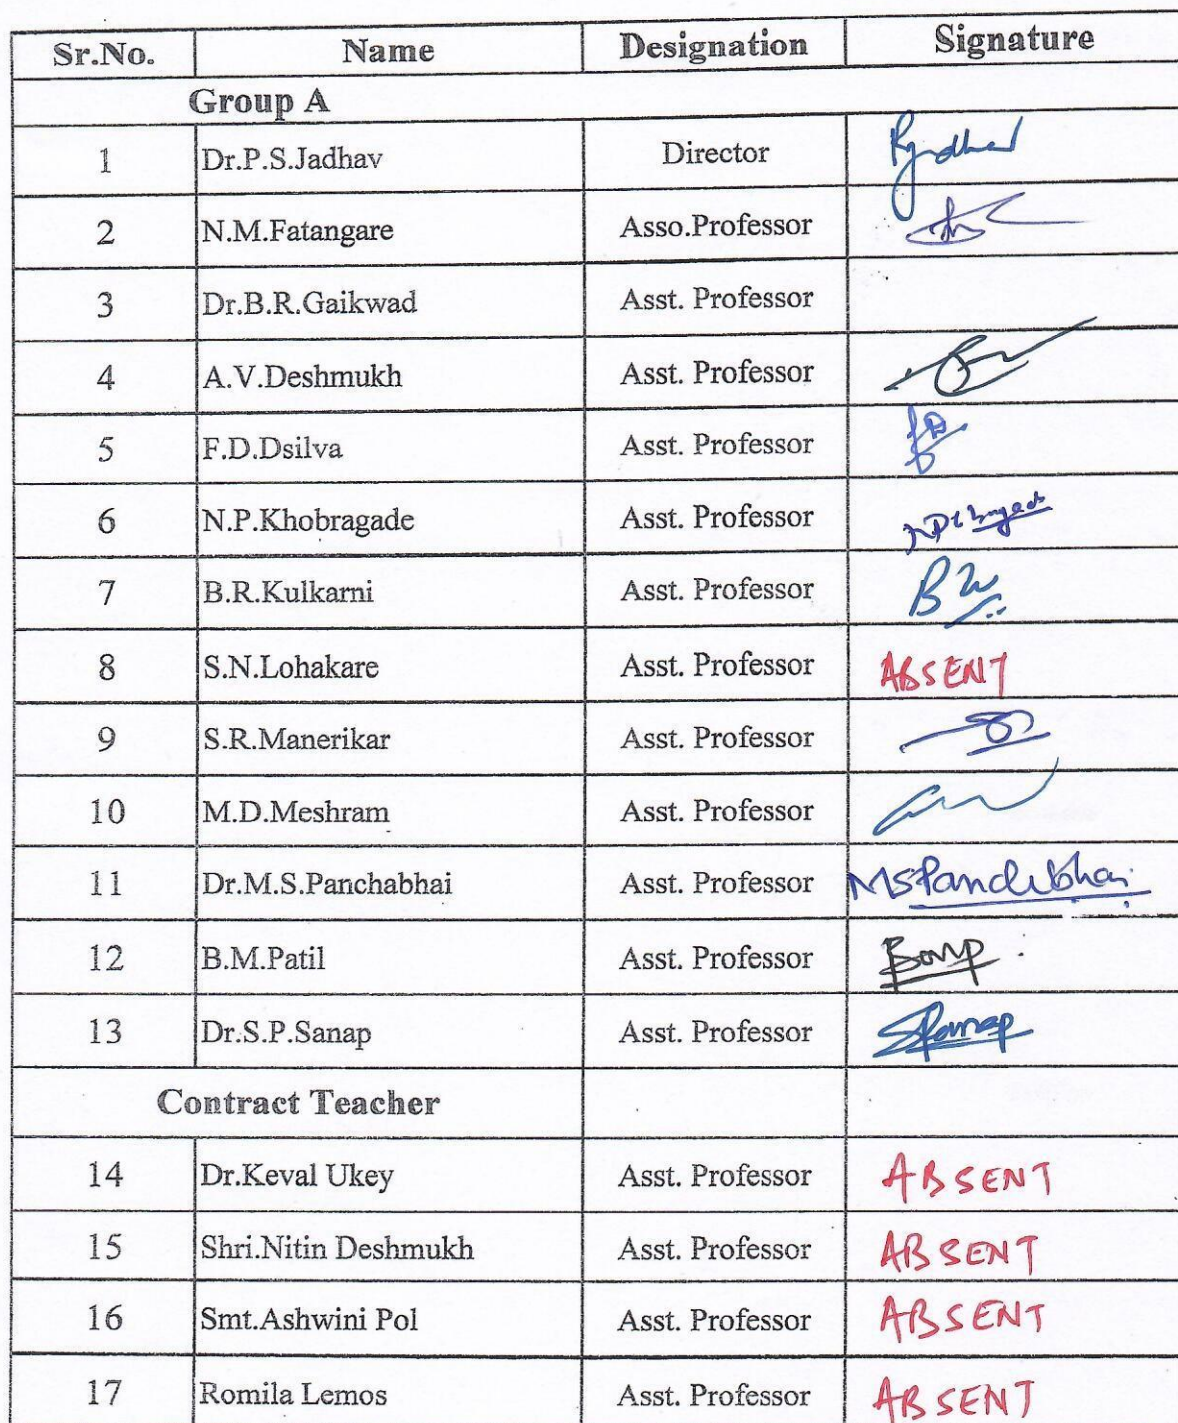 Sr.No. Name Designation Signature
Group A
1 Dr.P.S.Jadhav Director
2 N.M.Fatangare Asso.Professor
3 Dr.B.R.Gaikwad Asst. Professor
4 A.V.Deshmukh Asst. Professor
5 F.D.Dsilva Asst. Professor
6 N.P.Khobragade Asst. Professor
7 B.R.Kulkarni Asst. Professor
8 S.N.Lohakare Asst. Professor ABSENT
9 S.R.Manerikar Asst. Professor
10 M.D.Meshram Asst. Professor
11 Dr.M.S.Panchabhai Asst. Professor MSPanchabhai
12 B.M.Patil Asst. Professor
13 Dr.S.P.Sanap Asst. Professor SPSanap
Contract Teacher
14 Dr.Keval Ukey Asst. Professor ABSENT
15 Shri.Nitin Deshmukh Asst. Professor ABSENT
16 Smt.Ashwini Pol Asst. Professor ABSENT
17 Romila Lemos Asst. Professor ABSENT